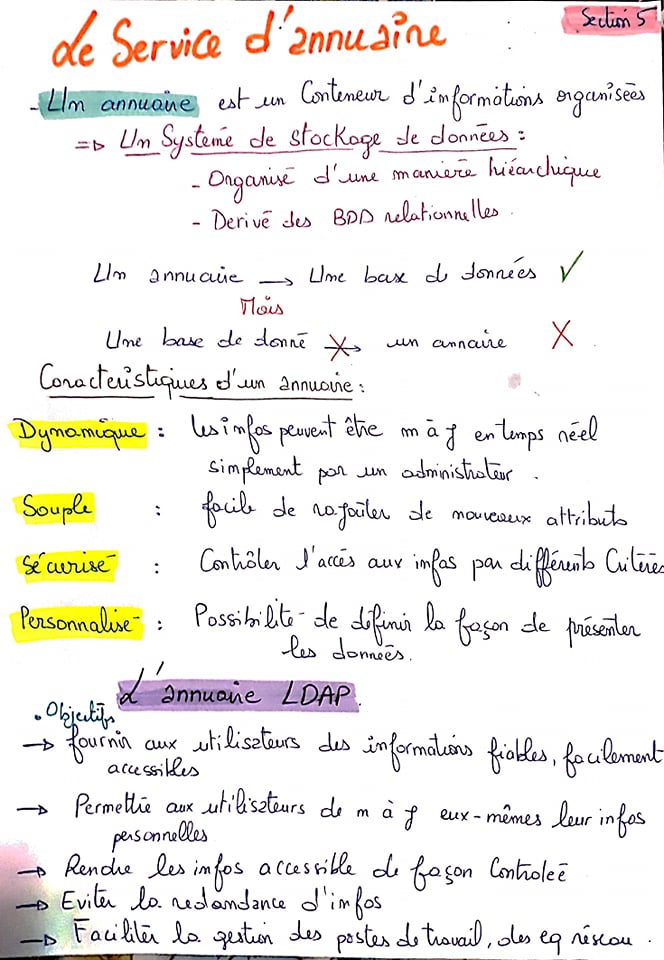 Section 5
Le Service d'annuaire
- Un annuaire est un Conteneur d'informations organisées
=> Un Système de stockage de données :
- Organisé d'une manière hiérarchique
- Derivé des BDD relationnelles.
Un annuaire → Une base de données ✓
Mais
Une base de donné → un annaire X
Caracteristiques d'un annuaire :
Dynamique : les infos peuvent être m à j en temps réel
simplement par un administrateur.
Souple : facile de rajouter de nouveaux attributs
Sécurisé : Contrôler l'accès aux infos par différents Critères
Personnalisé : Possibilité de définir la façon de présenter
les données.
L'annuaire LDAP.
• Objectifs
→ fournir aux utilisateurs des informations fiables, facilement
accessibles
→ Permettre aux utilisateurs de m à j eux-mêmes leur infos
personnelles
→ Rendre les infos accessible de façon Controleé
→ Eviter la redandance d'infos
→ Faciliter la gestion des postes de travail, des eq réseau.